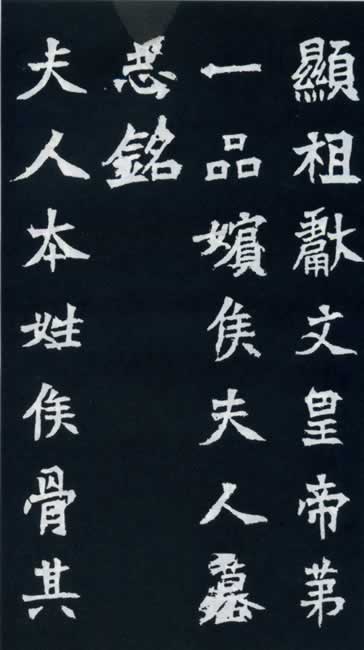 顯祖獻文皇帝苐
一品嬪侯夫人墓
志銘
夫人本姓侯骨其